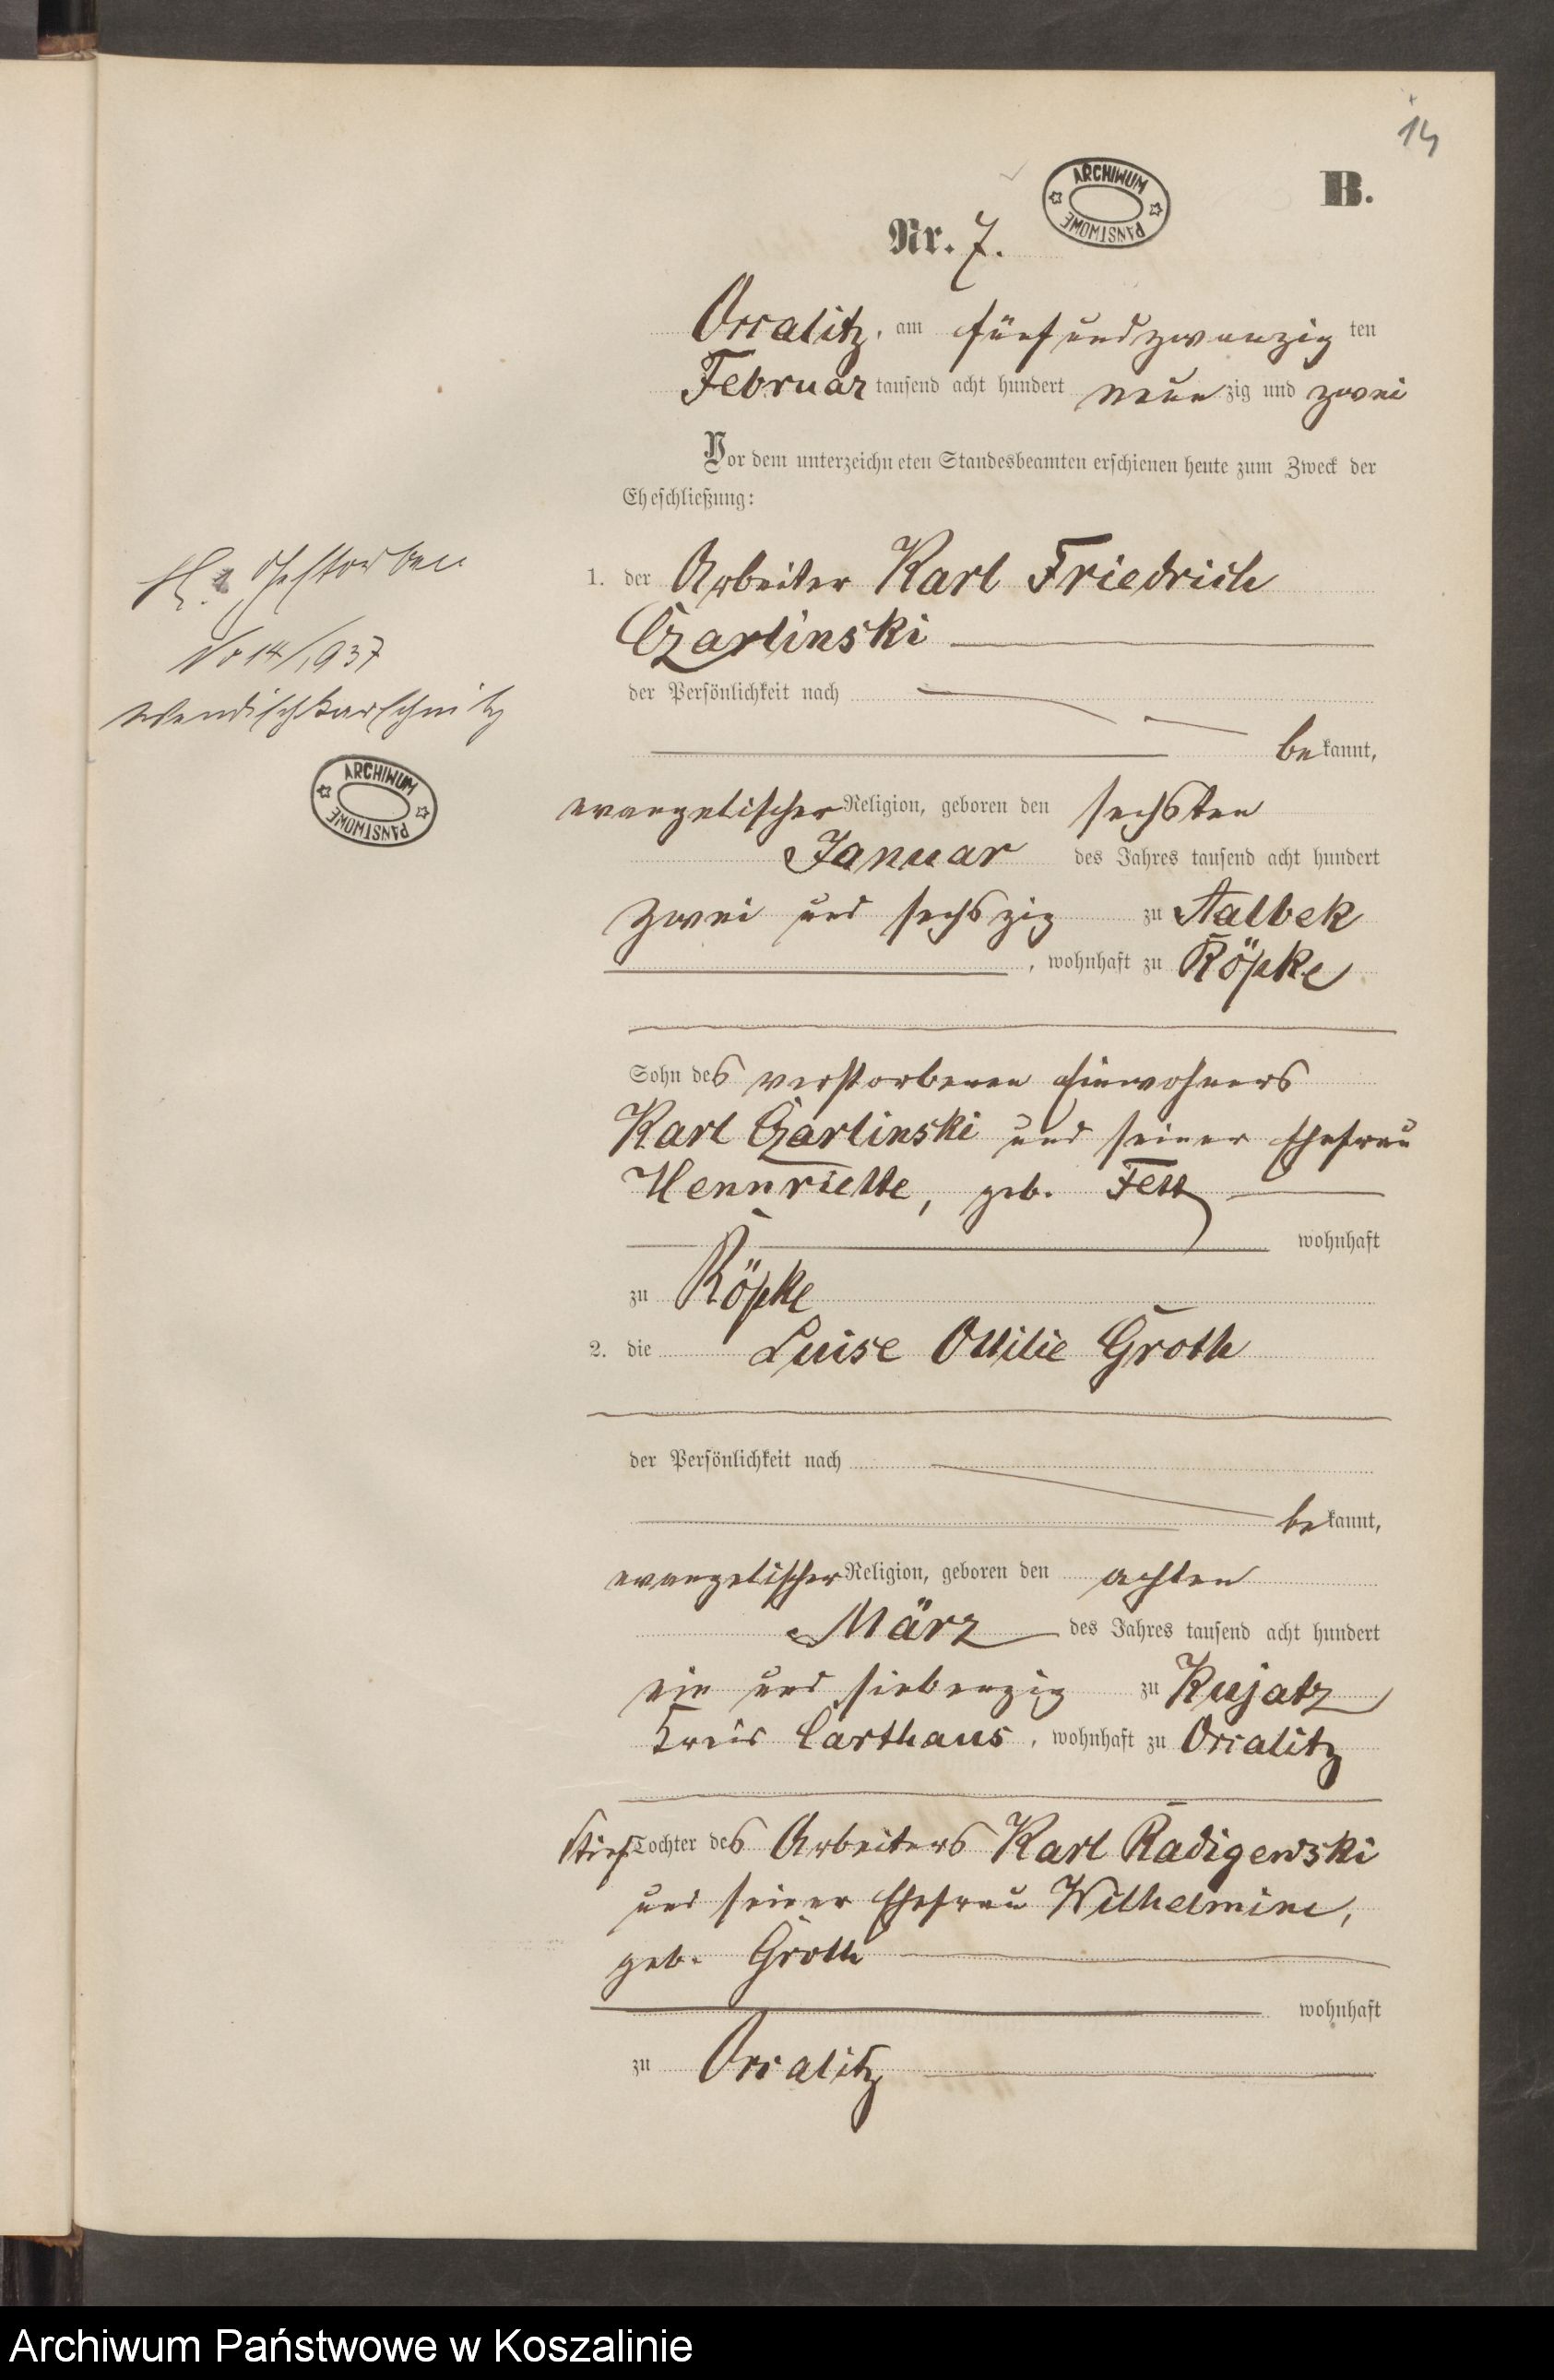 14
B.
ARCHIWUM PAŃSTWOWE
Nr. 7.
Orcalitz, am fünfundzwanzig ten
Februar tausend acht hundert neunzig und zwei
Vor dem unterzeichneten Standesbeamten erschienen heute zum Zweck der
Eheschließung:
1. der Arbeiter Karl Friedrich
Czarlinski
der Persönlichkeit nach
bekannt,
evangelischer Religion, geboren den sechsten
Januar des Jahres tausend acht hundert
zwei und sechszig zu Aalbek
, wohnhaft zu Röpke
Sohn des verstorbenen Einwohners
Karl Czarlinski und seiner Ehefrau
Hennriette, geb. Fett
wohnhaft
zu Röpke
2. die Luise Ottilie Groth
der Persönlichkeit nach
bekannt,
evangelischer Religion, geboren den achten
März des Jahres tausend acht hundert
ein und siebenzig zu Kujatz
Kreis Carthaus, wohnhaft zu Orcalitz
Stief Tochter des Arbeiters Karl Radigewski
und seiner Ehefrau Wilhelmine,
geb. Groth
wohnhaft
zu Orcalitz
gestorben
No 14/1937
Wendischkarschnitz
ARCHIWUM PAŃSTWOWE
Archiwum Państwowe w Koszalinie